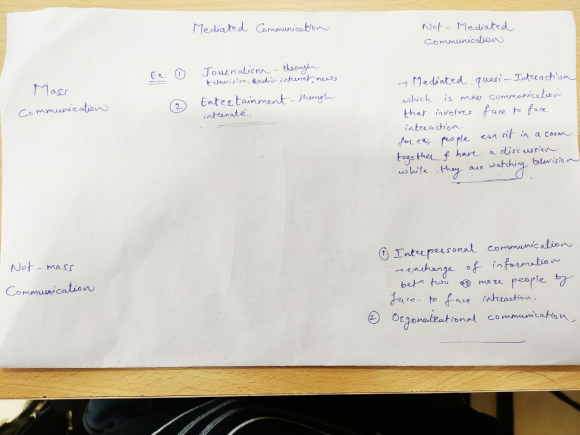 Mediated Communication
Not-Mediated
Communication
Mass
Communication
Ex: ① Journalism - through
television, Radio, internet, news
② Entertainment - through
internate.
→ Mediated quasi-Interaction
which is mass communication
that involves face to face
interaction.
for ex; people can sit in a room
together & have a discussion
while they are watching television
Not-mass
Communication
① Interpersonal communication
→ exchange of information
betn two or more people by
face to face interaction.
② Orgonaizational communication.